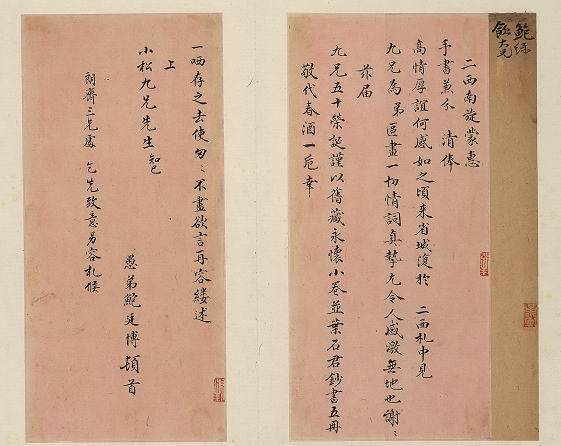 鮑綠
飲
二西南旋蒙惠
手書兼分 清俸
高情厚誼何感如之頃來省城復於 二西札中見
九兄為弟區畫一切情詞真摯尤令人感激無地也謝〻
茲届
九兄五十榮誕謹以舊藏永懷小卷並葉石君鈔書五冊
敬代春酒一卮幸
一哂存之去使匆〻不盡欲言再容縷述
上
小松九兄先生 知己
朗齋三兄處 乞先致意另容札候
愚弟鮑廷博頓首